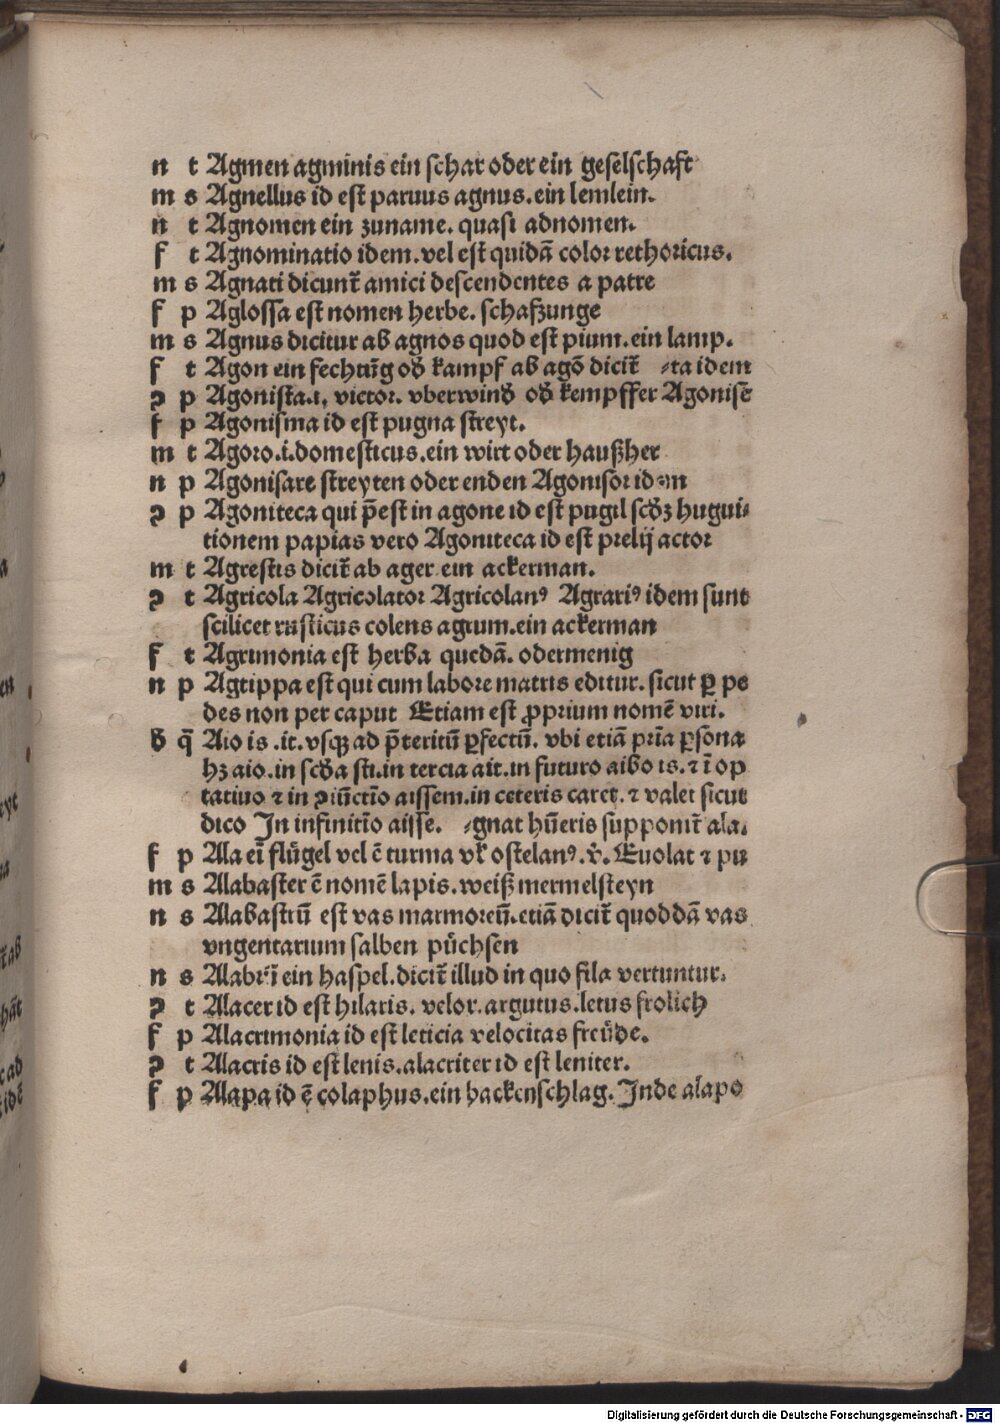 n t Agmen agminis ein schar oder ein geselschaft
m s Agnellus id est paruus agnus. ein lemlein.
n t Agnomen ein zuname. quasi adnomen.
f t Agnominatio idem. vel est quidā color rethoricus.
m s Agnati dicunt̄ amici descendentes a patre
f p Aglossa est nomen herbe. schafzunge
m s Agnus dicitur ab agnos quod est pium. ein lamp.
f t Agon ein fechtūg od̓ kampf ab agō dicit̄ ⸗ta idem
ꝯ p Agonista .i. victor. vberwind̓ od̓ kempffer Agonisē
f p Agonisma id est pugna streyt.
m t Agoro .i. domesticus. ein wirt oder haußher
n p Agonisare streyten oder enden Agonisor idem
ꝯ p Agoniteca qui p̄est in agone id est pugil scd̓ꝫ hugui⸗
tionem papias vero Agoniteca id est prelij actor
m t Agrestis dicit̄ ab ager. ein ackerman.
ꝯ t Agricola Agricolator Agricolanꝰ Agrariꝰ idem sunt
scilicet rusticus colens agrum. ein ackerman
f t Agrimonia est herba quedā. odermenig
n p Agrippa est qui cum labore matris editur. sicut ꝑ pe
des non per caput Etiam est ꝓprium nomē viri.
d̓ q̄ Aio is .it. vsqꝫ ad p̄teritū ꝑfectū. vbi etiā prīa ꝑsona
hꝫ aio. in scd̓a sti. in tercia ait. in futuro aibo is. ⁊ ī op
tatiuo ⁊ in ꝯiūctīo aissem. in ceteris caret. ⁊ valet sicut
dico In infinitīo aisse. ⸗gnat hūeris supponit̄ ala.
f p Ala eī flu̇gel vel ē turma vk̓ ostelanꝰ. v̓. Euolat ⁊ pu
m s Alabaster ē nomē lapis. weiß mermelsteyn
n s Alabastrū est vas marmoreū. etiā dicit̄ quoddā vas
vngentarium salben pu̇chsen
n s Alabrū ein haspel. dicit̄ illud in quo fila vertuntur.
ꝯ t Alacer id est hilaris. velox. argutus. letus frolich
f p Alacrimonia id est leticia velocitas freu̇de.
ꝯ t Alacris id est lenis. alacriter id est leniter.
f p Alapa id ē colaphus. ein backenschlag. Inde alapo
Digitalisierung gefördert durch die Deutsche Forschungsgemeinschaft - DFG